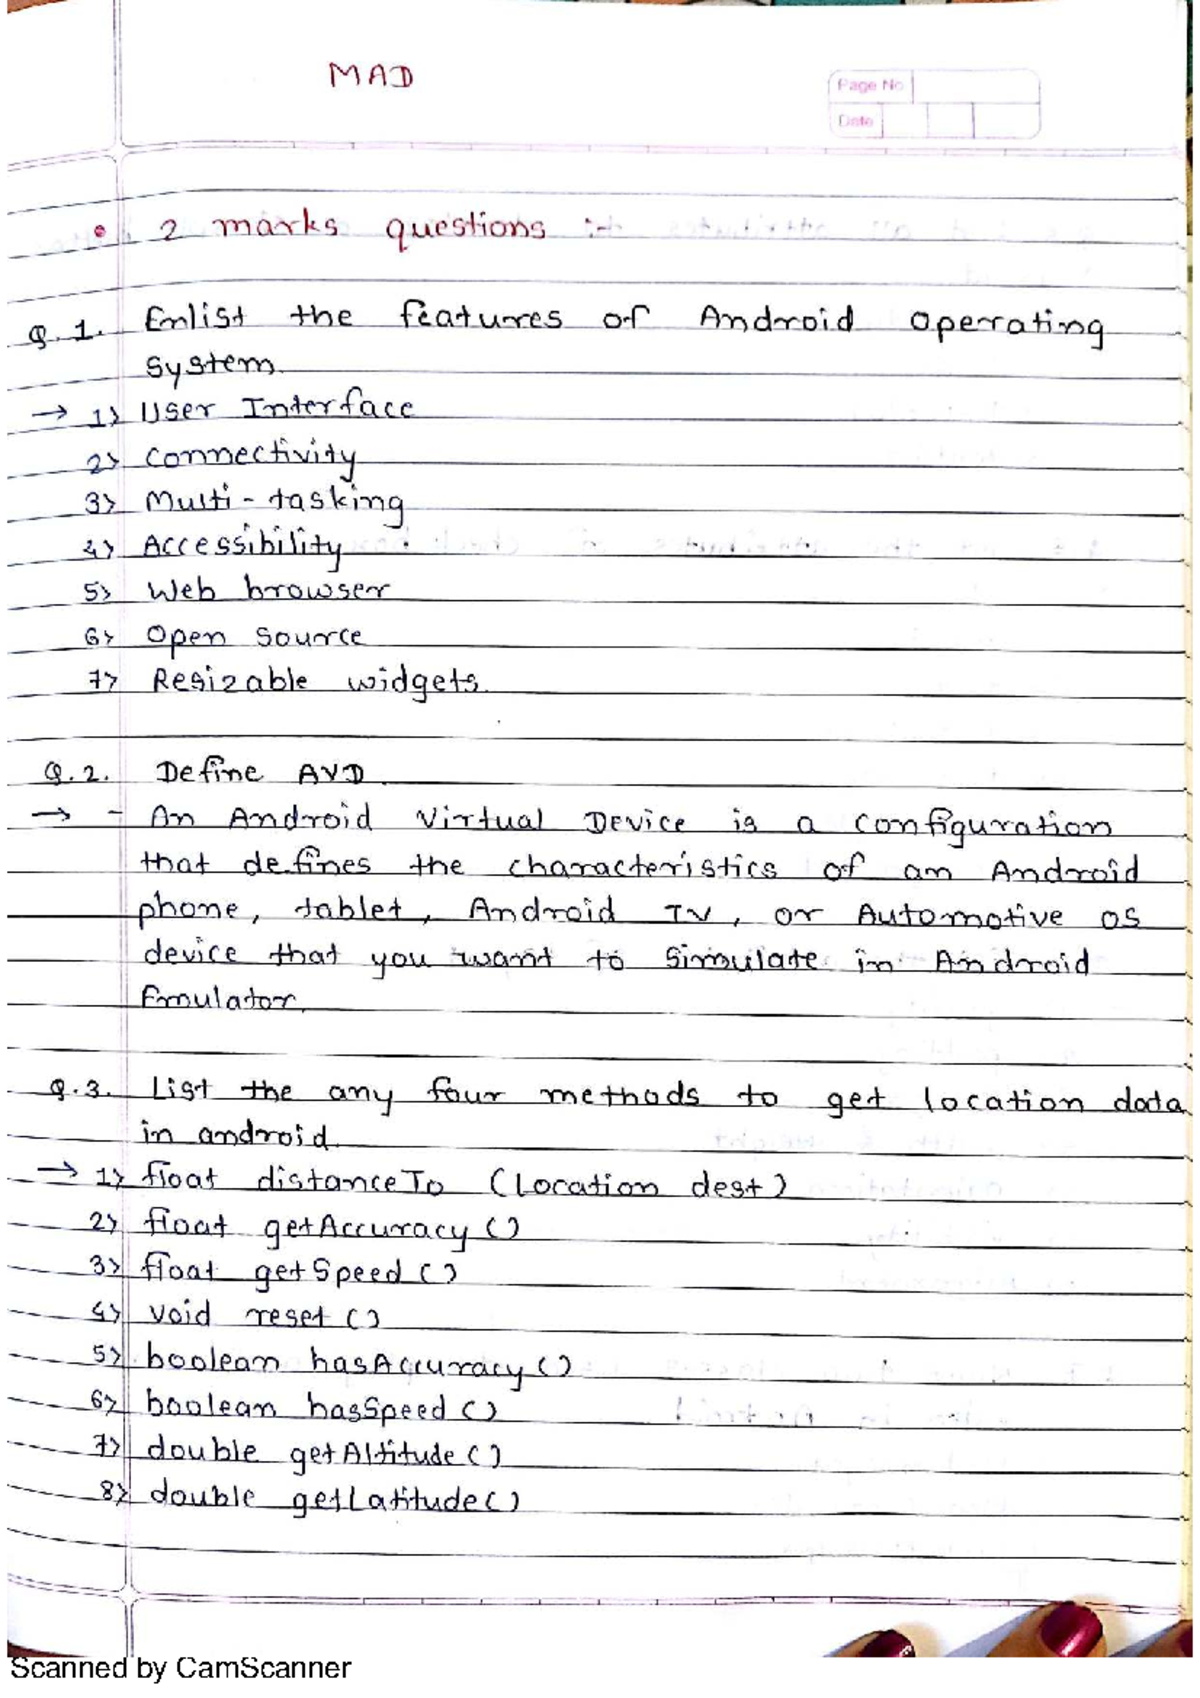 MAD
Page No
Date
• 2 marks questions :-
Q.1. Enlist the features of Android operating
system.
→ 1) User Interface
2) connectivity
3) Multi-tasking
4) Accessibility
5) Web browser
6) Open source
7) Resizable widgets.
Q.2. Define AVD
→ - An Android Virtual Device is a configuration
that defines the characteristics of an Android
phone, tablet, Android TV, or Automotive OS
device that you want to simulate in Android
Emulator.
Q.3. List the any four methods to get location data
in android.
→ 1) float distanceTo (Location dest)
2) float getAccuracy ()
3) float getSpeed ()
4) void reset ()
5) boolean hasAccuracy ()
6) boolean hasSpeed ()
7) double getAltitude ()
8) double getLatitude ()
Scanned by CamScanner